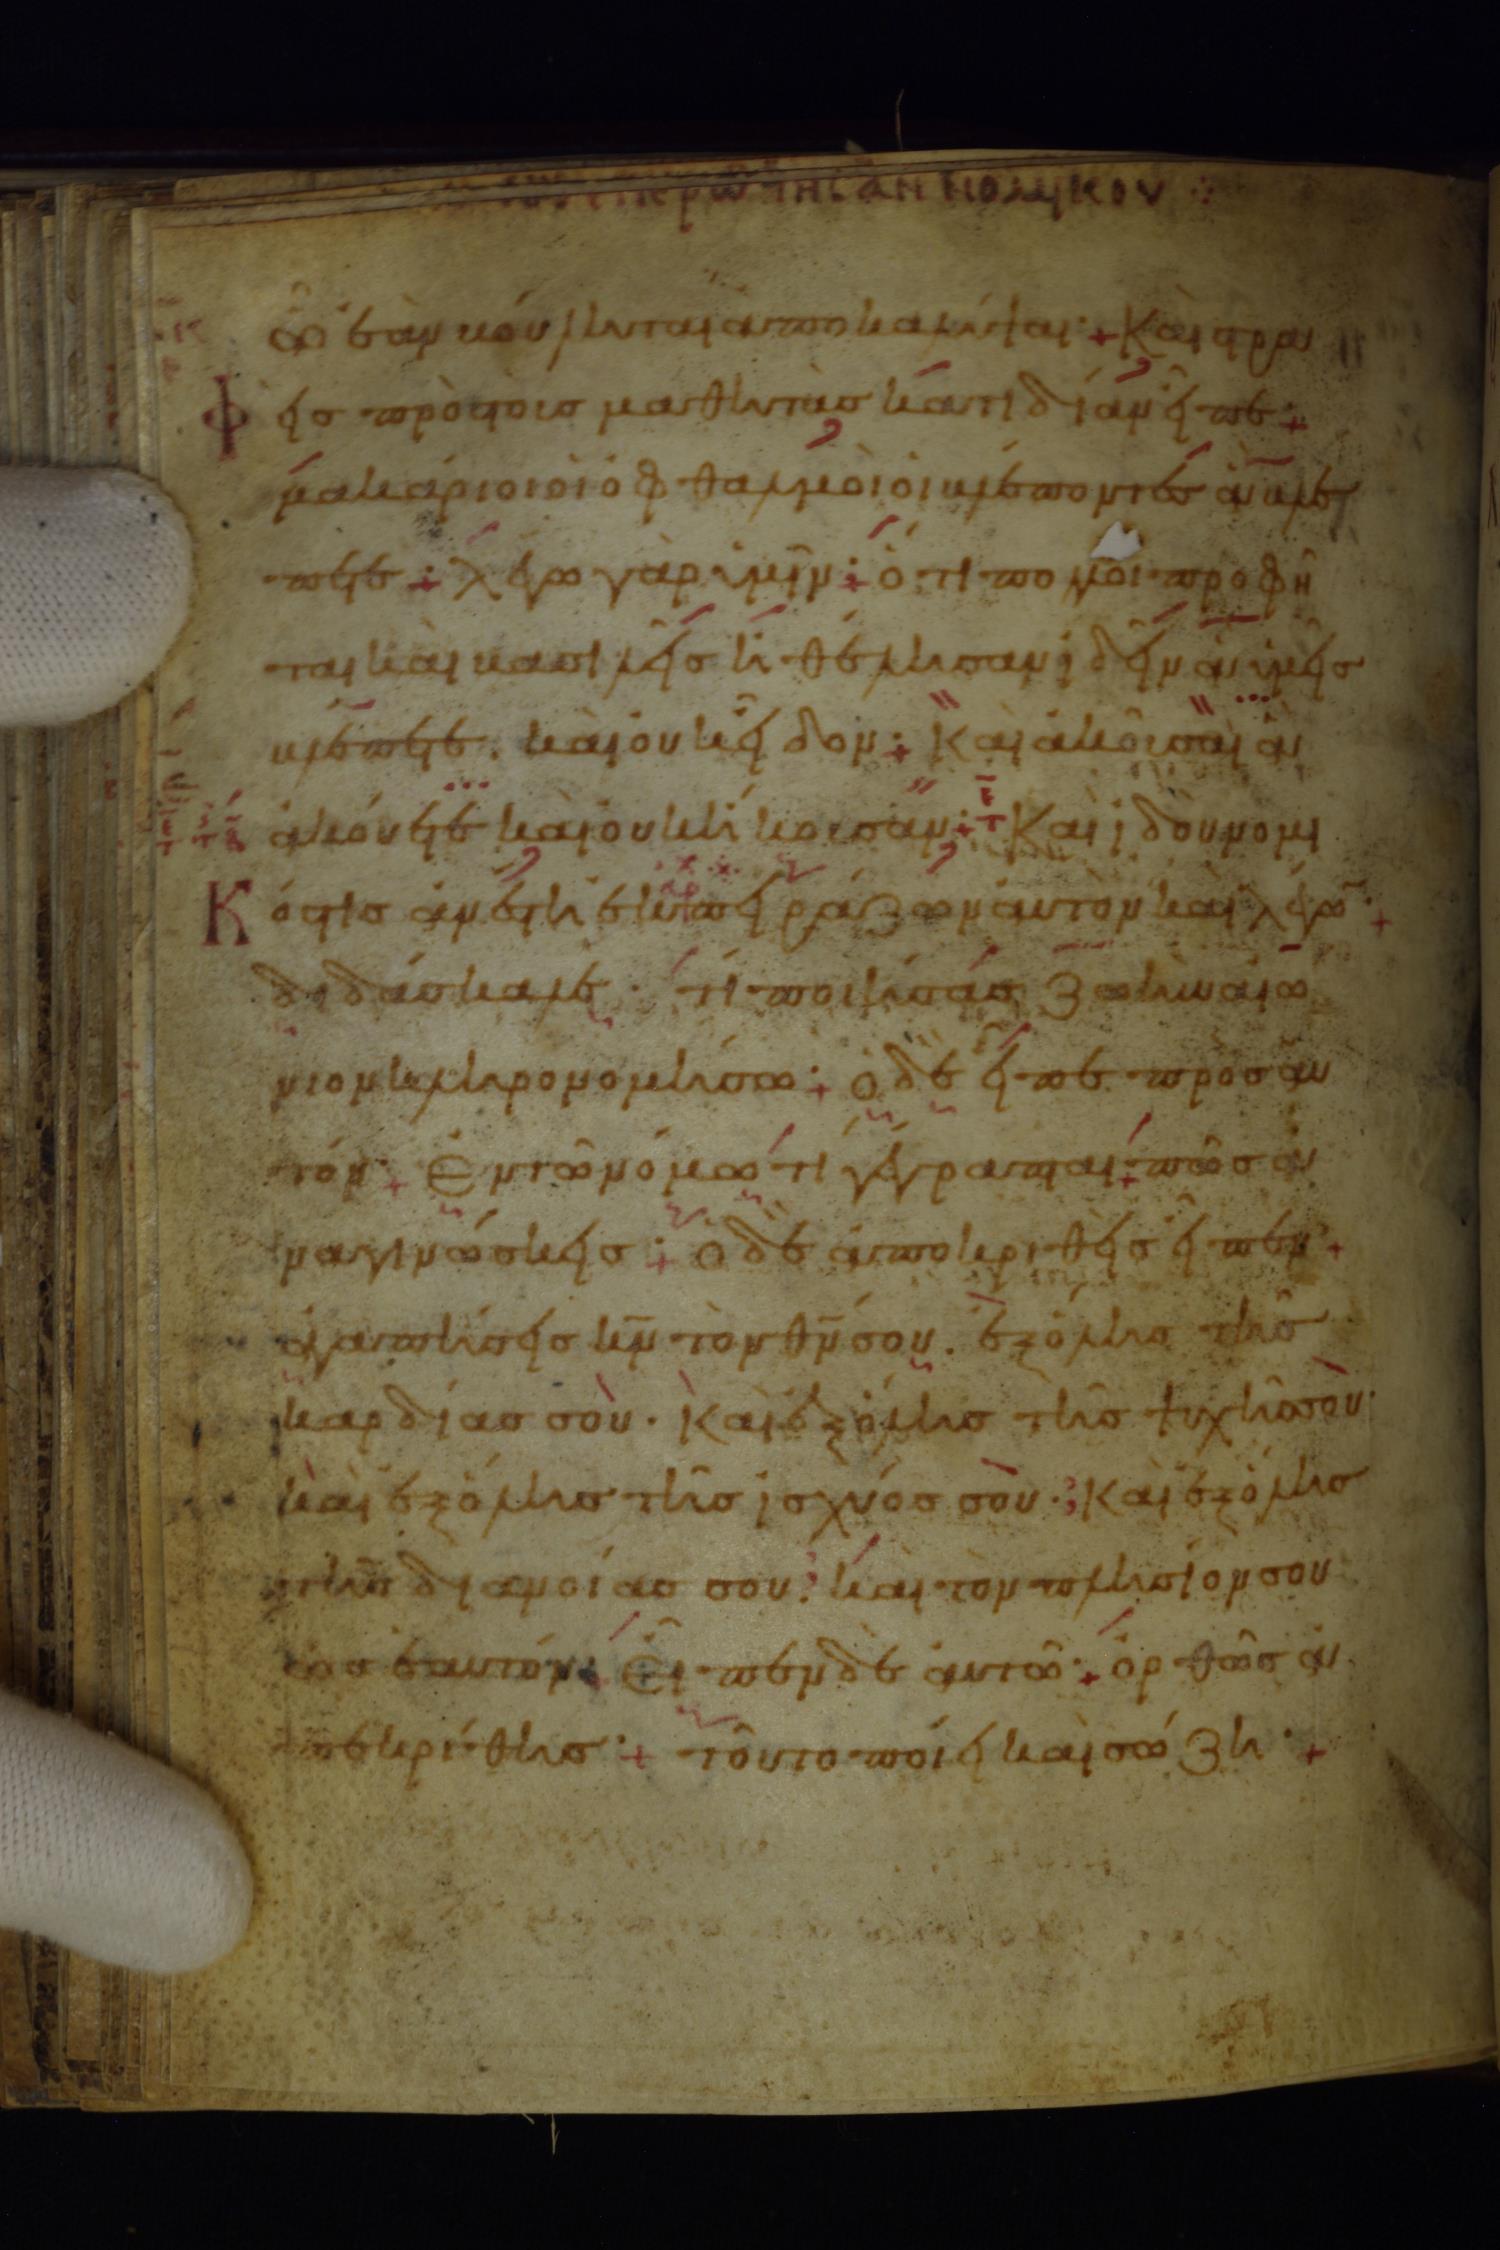 ὧ ἐὰν βούληται ἀποκαλύψαι· + Καὶ στρα
Φ εὶς πρὸς τοὺς μαθητὰς κατιδίαν εἶπε· +
μακάριοι οἱ ὀφθαλμοὶ οἱ βλέποντες ἃ βλέ
πετε· + λέγω γὰρ ὑμῖν· + ὅτι πολλοὶ προφῆ
ται καὶ βασιλεῖς ἠθέλησαν ἰδεῖν ἃ ὑμεῖς
βλέπετε. καὶ οὐκ εἶδον· + Καὶ ἀκοῦσαι ἃ
ἀκούετε καὶ οὐκ ἤκουσαν· + Καὶ ἰδοὺ νομι
Κ ός τις ἀνέστη ἐκπειράζων αὐτὸν καὶ λέγω̅· +
διδάσκαλε· τί ποιήσας ζωὴν αἰώ
νιον κληρονομήσω· + ὁ δὲ εἶπε πρὸς αὐ
τόν· + Ἐν τῶ νόμω τί γέγραπται· + πῶς ἀ
ναγινώσκεις· + ὁ δὲ ἀποκριθεὶς εἶπεν· +
ἀγαπήσεις κ̅ν̅ τὸν θ̅ν̅ σου. ἐξ ὅλης τῆς
καρδίας σοὺ. Καὶ ἐξ ὅλης τῆς ψυχῆς σοὺ·
καὶ ἐξ ὅλης τῆς ἰσχύος σοὺ· Καὶ ἐξ ὅλης
τῆς διανοίας σου· καὶ τὸν πλησίον σου
ὡς ἑαυτόν· + Εἶπεν δὲ αὐτῶ· + ὀρθῶς ἀ
πεκρίθης· + τοῦτο ποίει καὶ σώζη· +